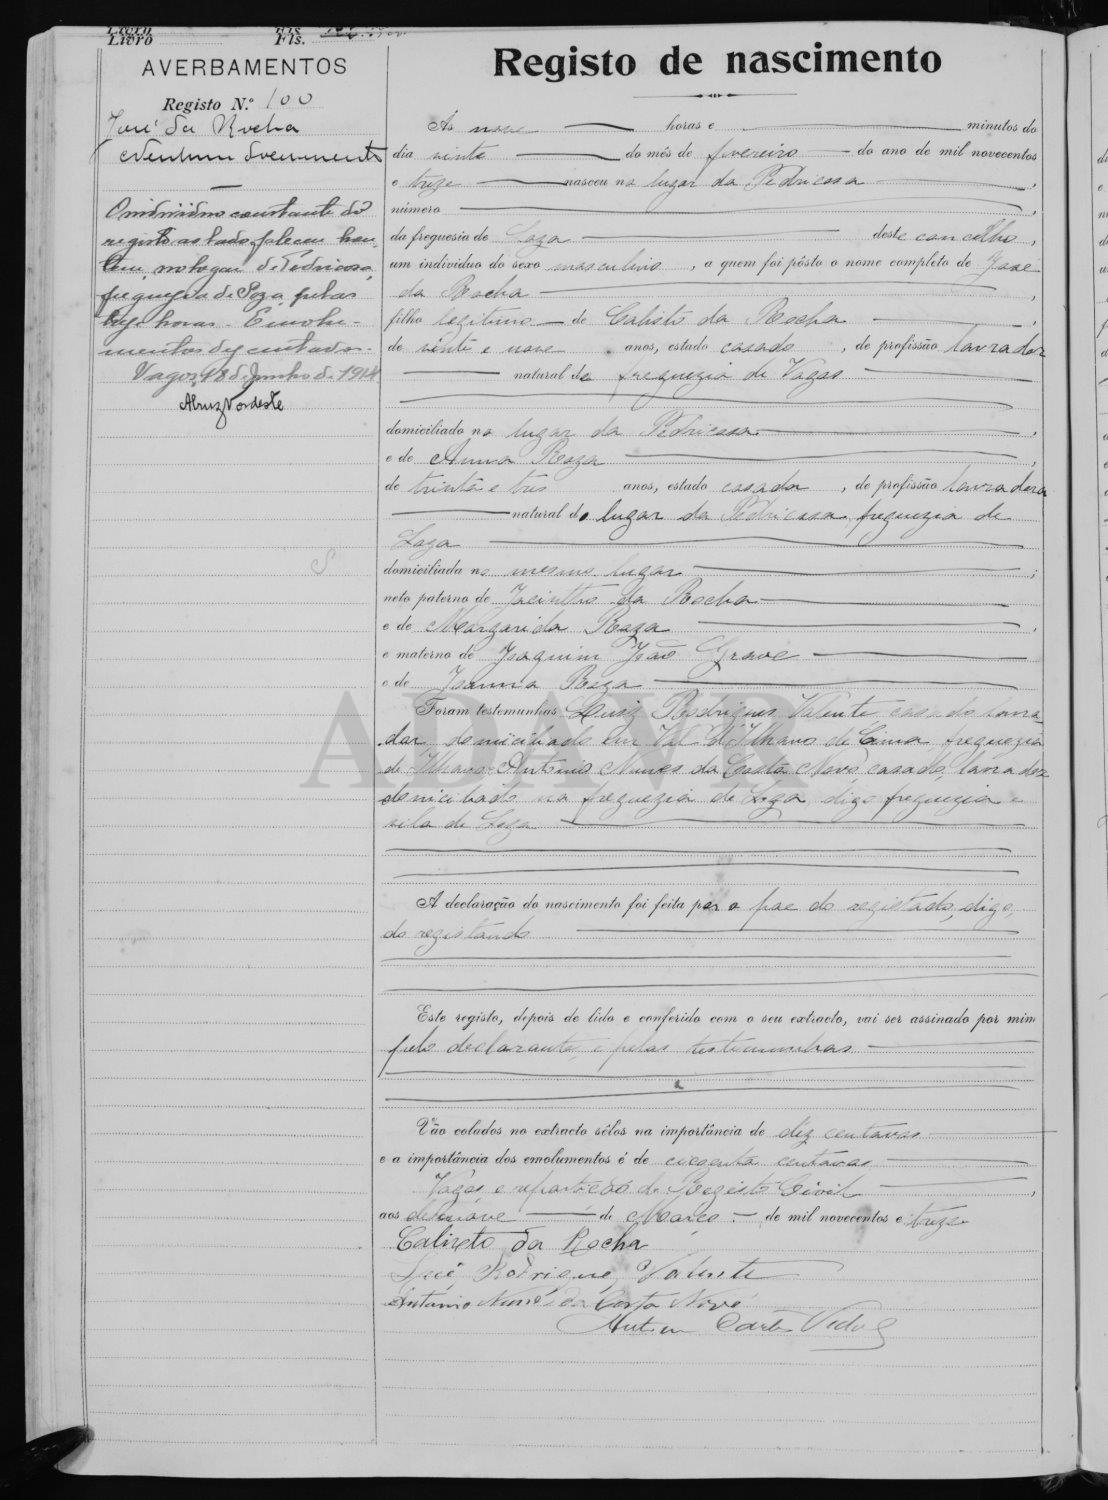 Livro Fls.
Livro Fls.
AVERBAMENTOS
Registo N.º 100
José da Rocha
Nenhum documento
O individuo constante do
registo ao lado faleceu hon-
tem, no logar de Pedricosa,
freguezia de Soza, pelas
treze horas. Emolu-
mentos dez centavos.
Vagos, 18 de Junho de 1914
Registo de nascimento
Ás nove horas e minutos do
dia vinte do mês de fevereiro do ano de mil novecentos
e treze nasceu no lugar da Pedricosa ,
número ,
da freguesia de Soza deste concelho ,
um individuo do sexo masculino , a quem foi pôsto o nome completo de José
da Rocha ,
filho legitimo de Calisto da Rocha ,
de vinte e nove anos, estado casado , de profissão lavrador
natural de freguezia de Vagos
domiciliado no lugar da Pedricosa ,
e de Anna Roza ,
de trinta e três anos, estado casada , de profissão lavradora
natural do lugar da Pedricosa, freguezia de
Soza
domiciliada no mesmo lugar ;
neto paterno de Jacintho da Rocha
e de Margarida Roza ,
e materno de Joaquim João Grave
e de Joanna Roza
Foram testemunhas Rodrigues Valente casado lavra-
dor domiciliado em Val d'Ilhavo de Cima freguezia
de Ilhavo e Antonio Nunes da Costa Novo, casado, lavrador
domiciliado na freguezia de Soza digo freguezia e
vila de Soza
A declaração do nascimento foi feita por o pae do registado, digo,
do registando
Este registo, depois de lido e conferido com o seu extracto, vai ser assinado por mim
pelo declarante, e pelas testemunhas
Vão colados no extracto sêlos na importância de diz centavos
e a importância dos emolumentos é de centavos
Vagos e repartição do Registo Civil ,
aos desenove de Março de mil novecentos e treze
Calixto da Rocha
Rodrigues Valente
Antonio Nunes da Costa Novo
ADAVR